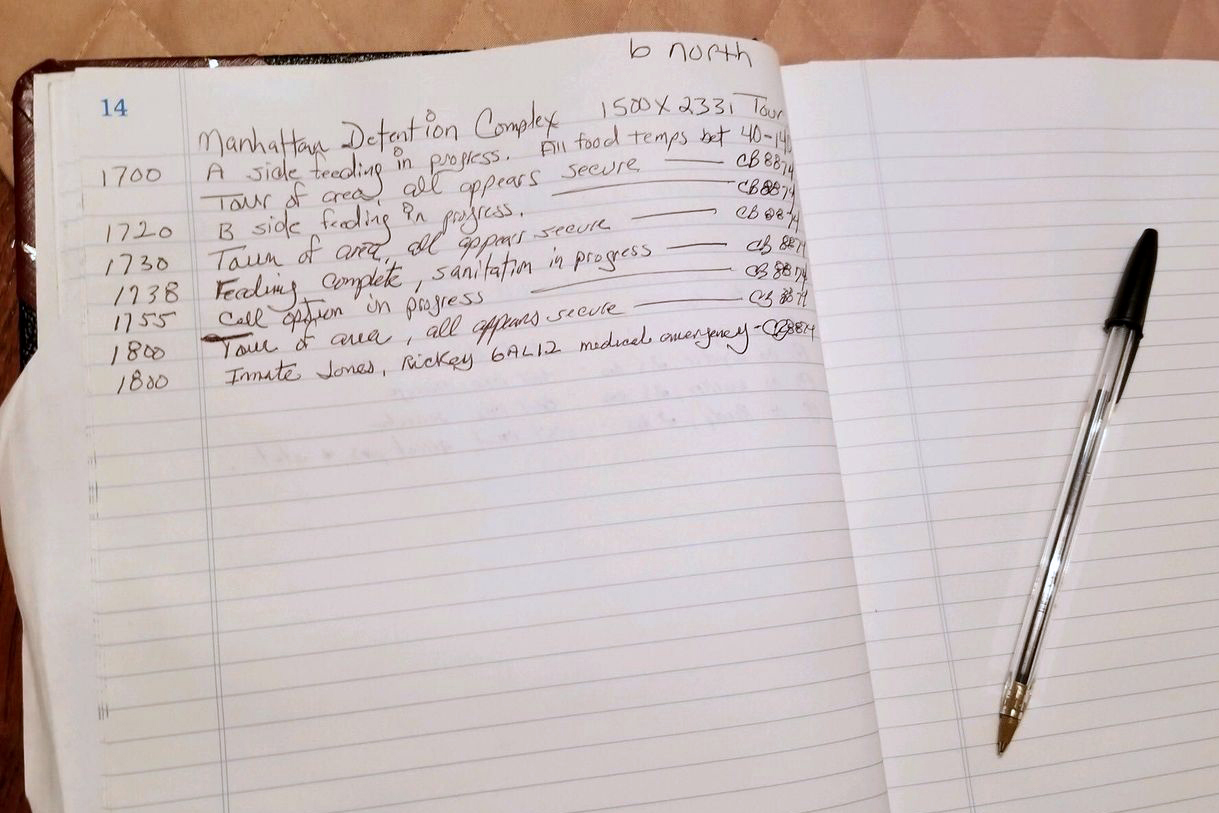 6 north
14
Manhattan Detention Complex 1500X2331 Tour
1700 A side feeding in progress. All food temps bet 40-140
Tour of area, all appears secure — CB8874
1720 B side feeding in progress. — CB8874
1730 Tour of area, all appears secure — CB8874
1738 Feeding complete, sanitation in progress — CB 8874
1755 Cell option in progress — CB8874
1800 Tour of area, all appears secure — CB 8874
1800 Inmate Jones, Rickey 6AL12 medical emergency - CB8874